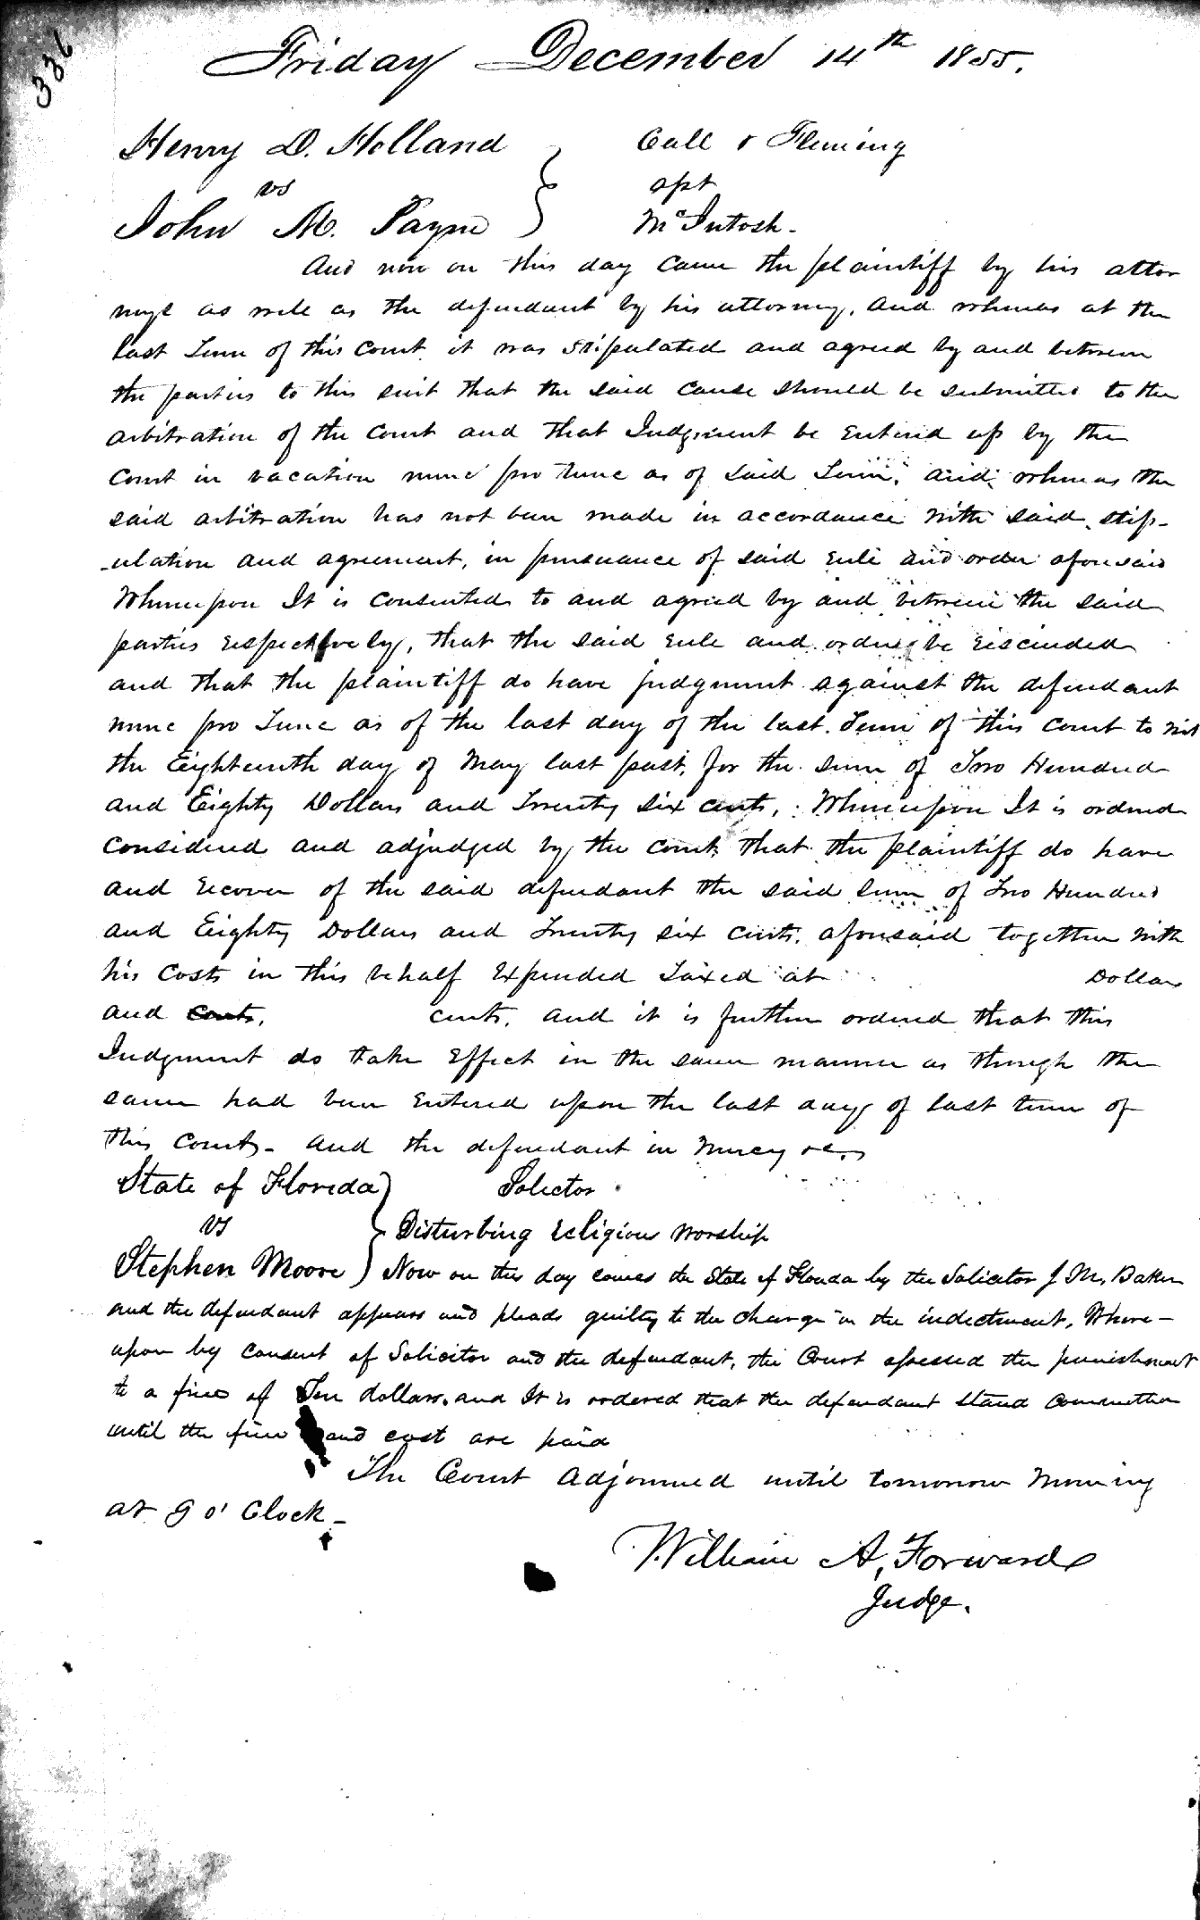 336
Friday December 14th 1855.
Henry D. Holland
vs
John M. Payne
Call & Fleming
apt
McIntosh.
And now on this day came the plaintiff by his attor
neys as well as the defendant by his attorney. And whereas at the
last Term of this Court it was stipulated and agreed by and between
the parties to this suit that the said cause should be submitted to the
arbitration of the Court and that Judgment be Entered up by the
Court in vacation nunc pro tunc as of said Term, and whereas the
said arbitration has not been made in accordance with said stip-
-ulation and agreement, in pursuance of said rule and order aforesaid
Whereupon It is consented to and agreed by and between the said
parties respectively, that the said rule and order be rescinded
and that the plaintiff do have judgment against the defendant
nunc pro tunc as of the last day of the last Term of this Court to wit
the Eighteenth day of May last past, for the sum of Two Hundred
and Eighty Dollars and Twenty six cents, Whereupon It is ordered
considered and adjudged by the court that the plaintiff do have
and recover of the said defendant the said sum of Two Hundred
and Eighty Dollars and Twenty six cents. aforesaid together with
his costs in this behalf Expended Taxed at Dollars
and cents. cents. and it is further ordered that this
Judgment do take Effect in the same manner as though the
same had been Entered upon the last day of last term of
this Court. and the defendant in mercy &c.
State of Florida
vs
Stephen Moore
Solictor
Disturbing religious worship
Now on this day comes the State of Florida by the Solicitor J M. Baker
and the defendant appears and pleads guilty to the charge in the indictment, Where-
upon by consent of Solicitor and the defendant, the Court assessed the punishment
to a fine of Ten dollars. and It is ordered that the defendant stand committed
until the fine and cost are paid
The Court adjourned until tomorrow morning
at 9 o' Clock -
William A, Forward
Judge.